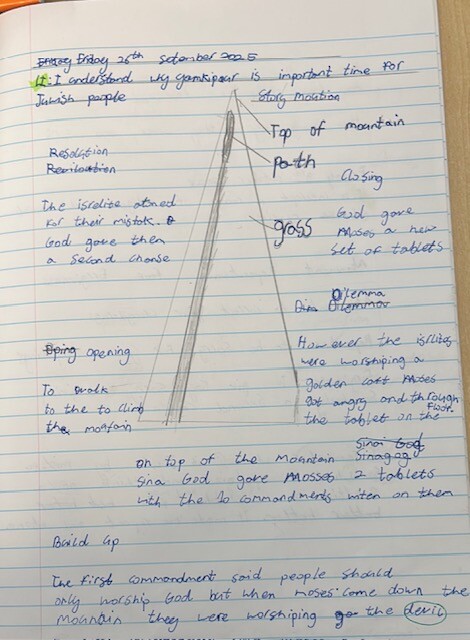 Friday Friday 26th setember 2025
LI: I understand wy yomkipour is important time for
Juwish people
Story mountion
Top of mountain
path
grass
Resolution
The isrelite atoned
for their mistak.
God gave them
a second chanse
Closing
God gave
Moses a new
set of tablets
Dilemma
Dilemmar
However the isrlites
were worshiping a
golden calf Moses
Got angry and through
the tablet on the floor.
opening
To walk
to the to climb
the moatain
Sinai God
Sinagog
on top of the mountain
sina God gave Mosses 2 tablets
with the 10 commandments witen on them
Build up
The first commandment said people should
only worship God but when moses come down the
mountain they were worshiping the devil